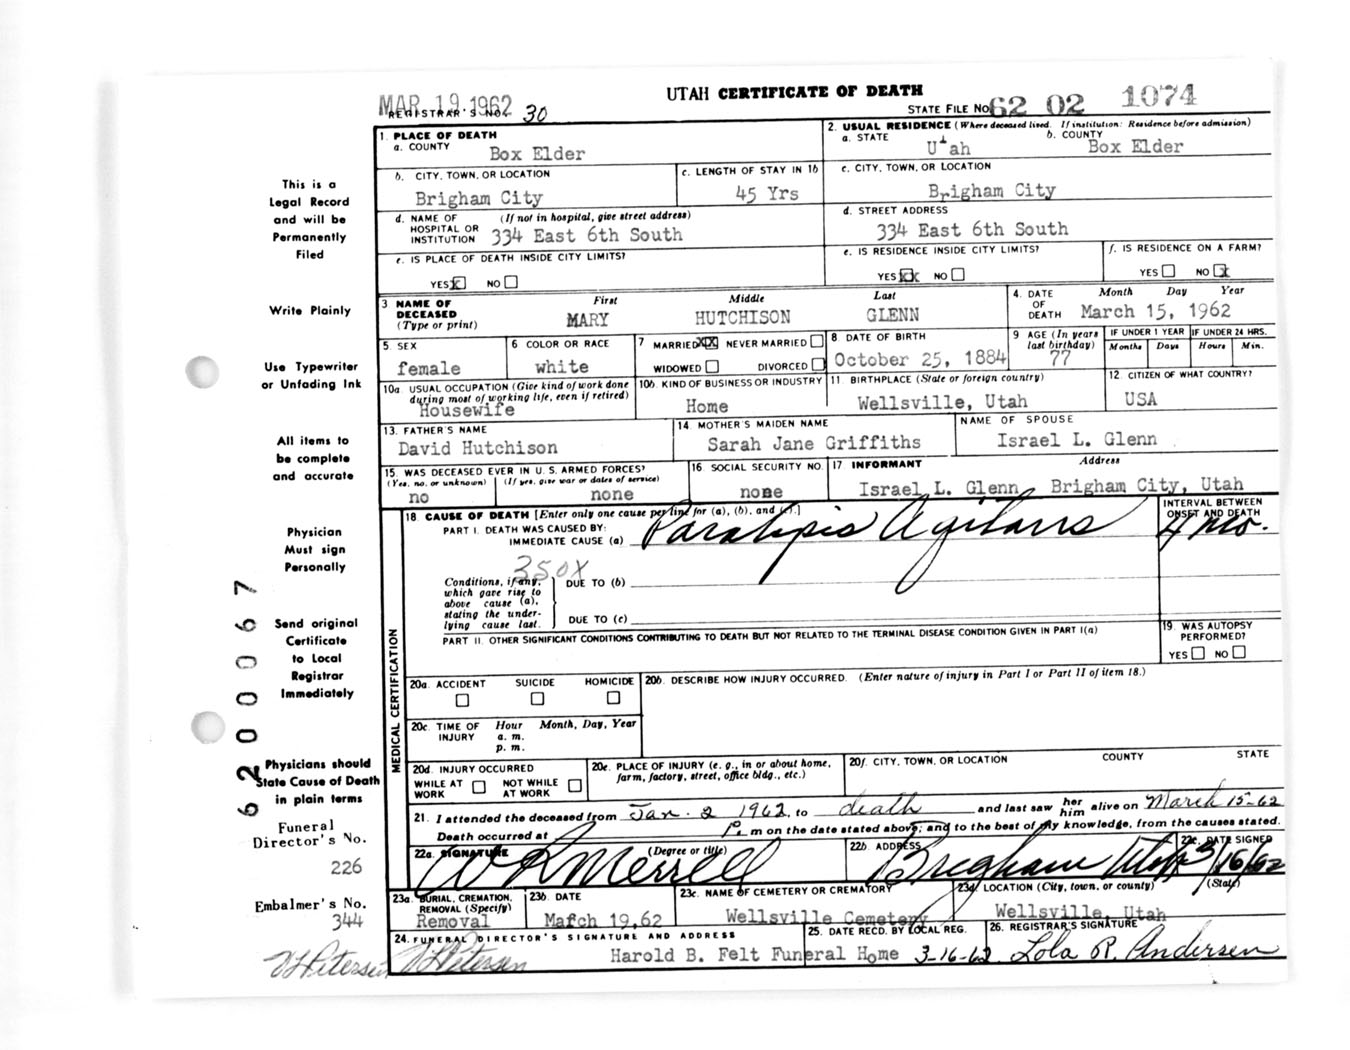 UTAH CERTIFICATE OF DEATH
MAR 19 1962
REGISTRAR'S NO. 30
STATE FILE NO. 62 02 1074
1. PLACE OF DEATH
a. COUNTY
Box Elder
2. USUAL RESIDENCE (Where deceased lived. If institution: Residence before admission)
a. STATE
Utah
b. COUNTY
Box Elder
b. CITY, TOWN, OR LOCATION
Brigham City
c. LENGTH OF STAY IN 1b
45 Yrs
c. CITY, TOWN, OR LOCATION
Brigham City
d. NAME OF HOSPITAL OR INSTITUTION
(If not in hospital, give street address)
334 East 6th South
d. STREET ADDRESS
334 East 6th South
e. IS PLACE OF DEATH INSIDE CITY LIMITS?
YES x NO
e. IS RESIDENCE INSIDE CITY LIMITS?
YES xx NO
f. IS RESIDENCE ON A FARM?
YES NO x
3 NAME OF DECEASED
(Type or print)
First Middle Last
MARY HUTCHISON GLENN
4. DATE OF DEATH
Month Day Year
March 15, 1962
5. SEX
female
6 COLOR OR RACE
white
7 MARRIED XX NEVER MARRIED
WIDOWED DIVORCED
8 DATE OF BIRTH
October 25, 1884
9 AGE (In years last birthday)
77
IF UNDER 1 YEAR
Months Days
IF UNDER 24 HRS.
Hours Min.
10a. USUAL OCCUPATION (Give kind of work done during most of working life, even if retired)
Housewife
10b. KIND OF BUSINESS OR INDUSTRY
Home
11. BIRTHPLACE (State or foreign country)
Wellsville, Utah
12. CITIZEN OF WHAT COUNTRY?
USA
13. FATHER'S NAME
David Hutchison
14. MOTHER'S MAIDEN NAME
Sarah Jane Griffiths
NAME OF SPOUSE
Israel L. Glenn
15. WAS DECEASED EVER IN U. S. ARMED FORCES?
(Yes, no, or unknown) (If yes, give war or dates of service)
no none
16. SOCIAL SECURITY NO.
none
17 INFORMANT Address
Israel L. Glenn Brigham City, Utah
18. CAUSE OF DEATH [Enter only one cause per line for (a), (b), and (c).]
PART I. DEATH WAS CAUSED BY:
IMMEDIATE CAUSE (a) Paralysis Agitans
INTERVAL BETWEEN ONSET AND DEATH
4 mo.
350X
Conditions, if any, which gave rise to above cause (a), stating the underlying cause last.
DUE TO (b)
DUE TO (c)
PART II. OTHER SIGNIFICANT CONDITIONS CONTRIBUTING TO DEATH BUT NOT RELATED TO THE TERMINAL DISEASE CONDITION GIVEN IN PART I(a)
19. WAS AUTOPSY PERFORMED?
YES NO
20a. ACCIDENT SUICIDE HOMICIDE
20b. DESCRIBE HOW INJURY OCCURRED. (Enter nature of injury in Part I or Part II of item 18.)
20c. TIME OF INJURY
Hour Month, Day, Year
a. m.
p. m.
20d. INJURY OCCURRED
WHILE AT WORK NOT WHILE AT WORK
20e. PLACE OF INJURY (e. g., in or about home, farm, factory, street, office bldg., etc.)
20f. CITY, TOWN, OR LOCATION COUNTY STATE
21. I attended the deceased from Jan. 2 1962, to death and last saw her him alive on March 15-62
Death occurred at P. m on the date stated above; and to the best of my knowledge, from the causes stated.
22a. SIGNATURE (Degree or title)
W R Merrell
22b. ADDRESS
Brigham Utah
22c. DATE SIGNED
3/16/62
23a. BURIAL, CREMATION, REMOVAL (Specify)
Removal
23b. DATE
March 19,62
23c. NAME OF CEMETERY OR CREMATORY
Wellsville Cemetery
23d. LOCATION (City, town, or county) (State)
Wellsville, Utah
24. FUNERAL DIRECTOR'S SIGNATURE AND ADDRESS
Petersen
Harold B. Felt Funeral Home
25. DATE RECD. BY LOCAL REG.
3-16-62
26. REGISTRAR'S SIGNATURE
Lola R. Andersen
MEDICAL CERTIFICATION
This is a
Legal Record
and will be
Permanently
Filed
Write Plainly
Use Typewriter
or Unfading Ink
All items to
be complete
and accurate
Physician
Must sign
Personally
Send original
Certificate
to Local
Registrar
Immediately
Physicians should
State Cause of Death
in plain terms
Funeral
Director's No.
226
Embalmer's No.
344
Petersen
6200067